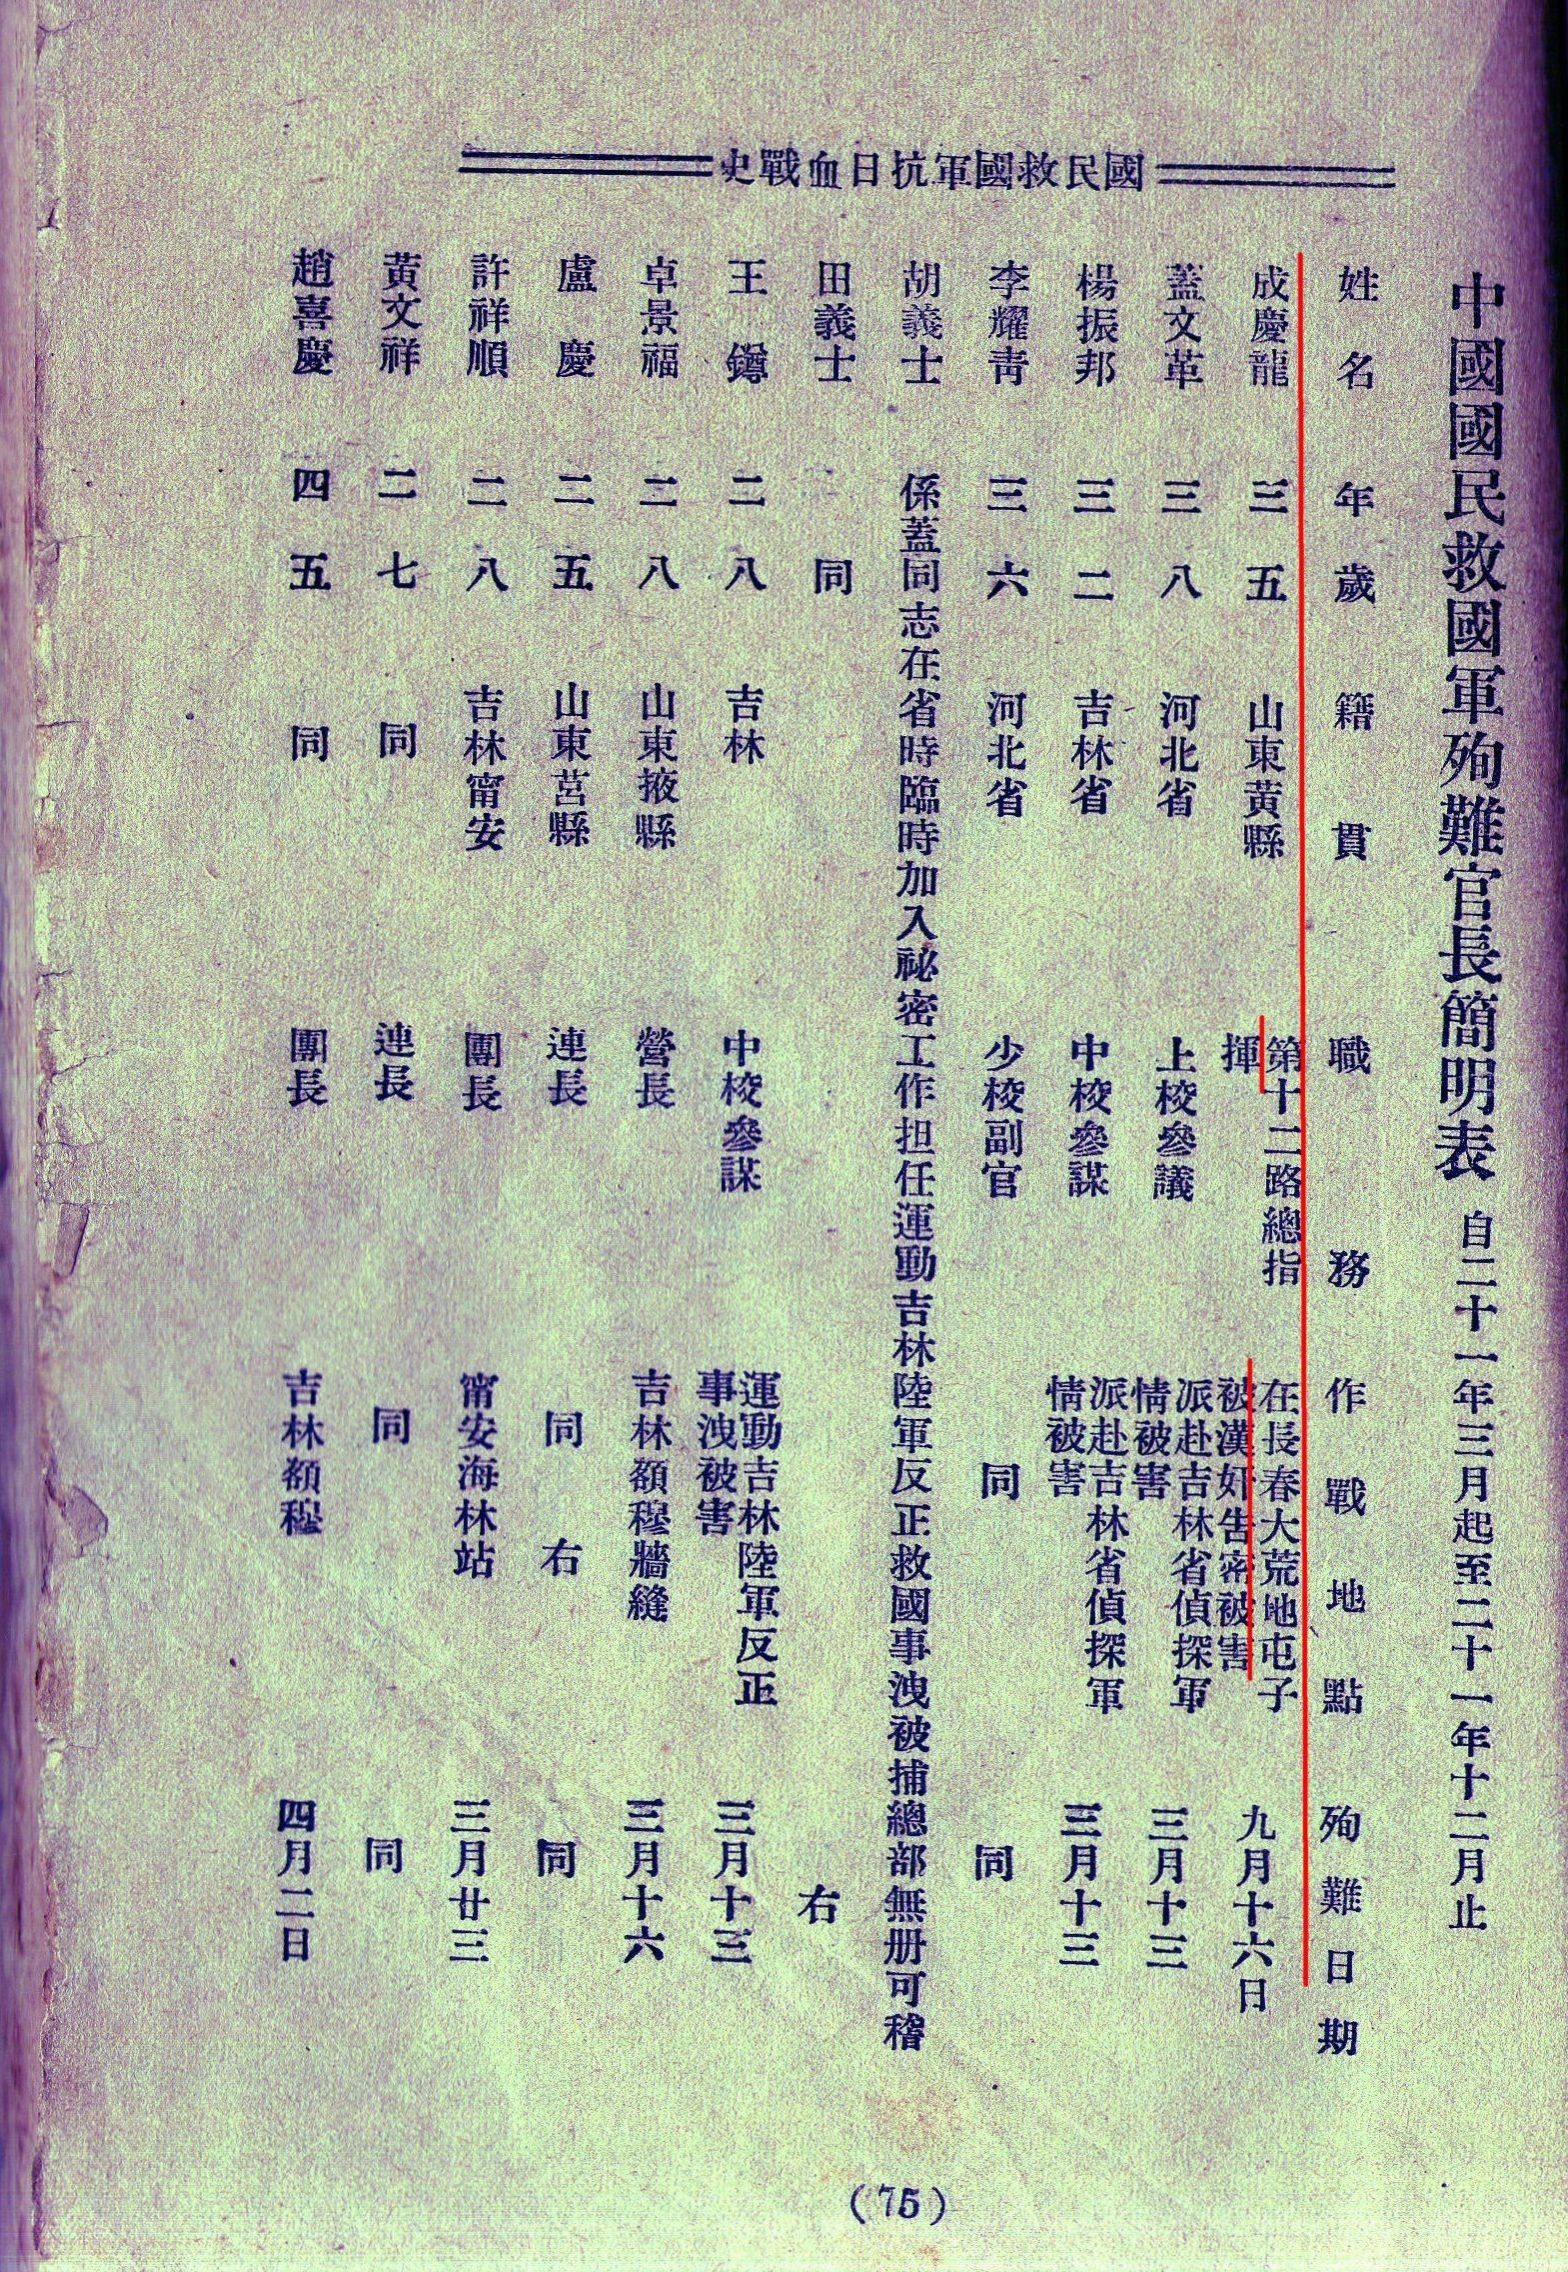 國民救國軍抗日血戰史
中國國民救國軍殉難官長簡明表 自二十一年三月起至二十一年十二月止
姓名 年歲 籍貫 職務 作戰地點 殉難日期
成慶龍 三五 山東黄縣 第十二路總指揮 在長春大荒地屯子被漢奸告密被害 九月十六日
蓋文革 三八 河北省 上校參議 派赴吉林省偵探軍情被害 三月十三
楊振邦 三二 吉林省 中校參謀 派赴吉林省偵探軍情被害 三月十三
李耀靑 三六 河北省 少校副官 同 同
胡義士 係蓋同志在省時臨時加入祕密工作担任運動吉林陸軍反正救國事洩被捕總部無册可稽
田義士 同 右
王鐏 二八 吉林 中校參謀 運動吉林陸軍反正事洩被害 三月十三
卓景福 二八 山東掖縣 營長 吉林額穆牆縫 三月十六
盧慶 二五 山東莒縣 連長 同右 同
許祥順 二八 吉林甯安 團長 甯安海林站 三月廿三
黃文祥 二七 同 連長 同 同
趙喜慶 四五 同 團長 吉林額穆 四月二日
(75)